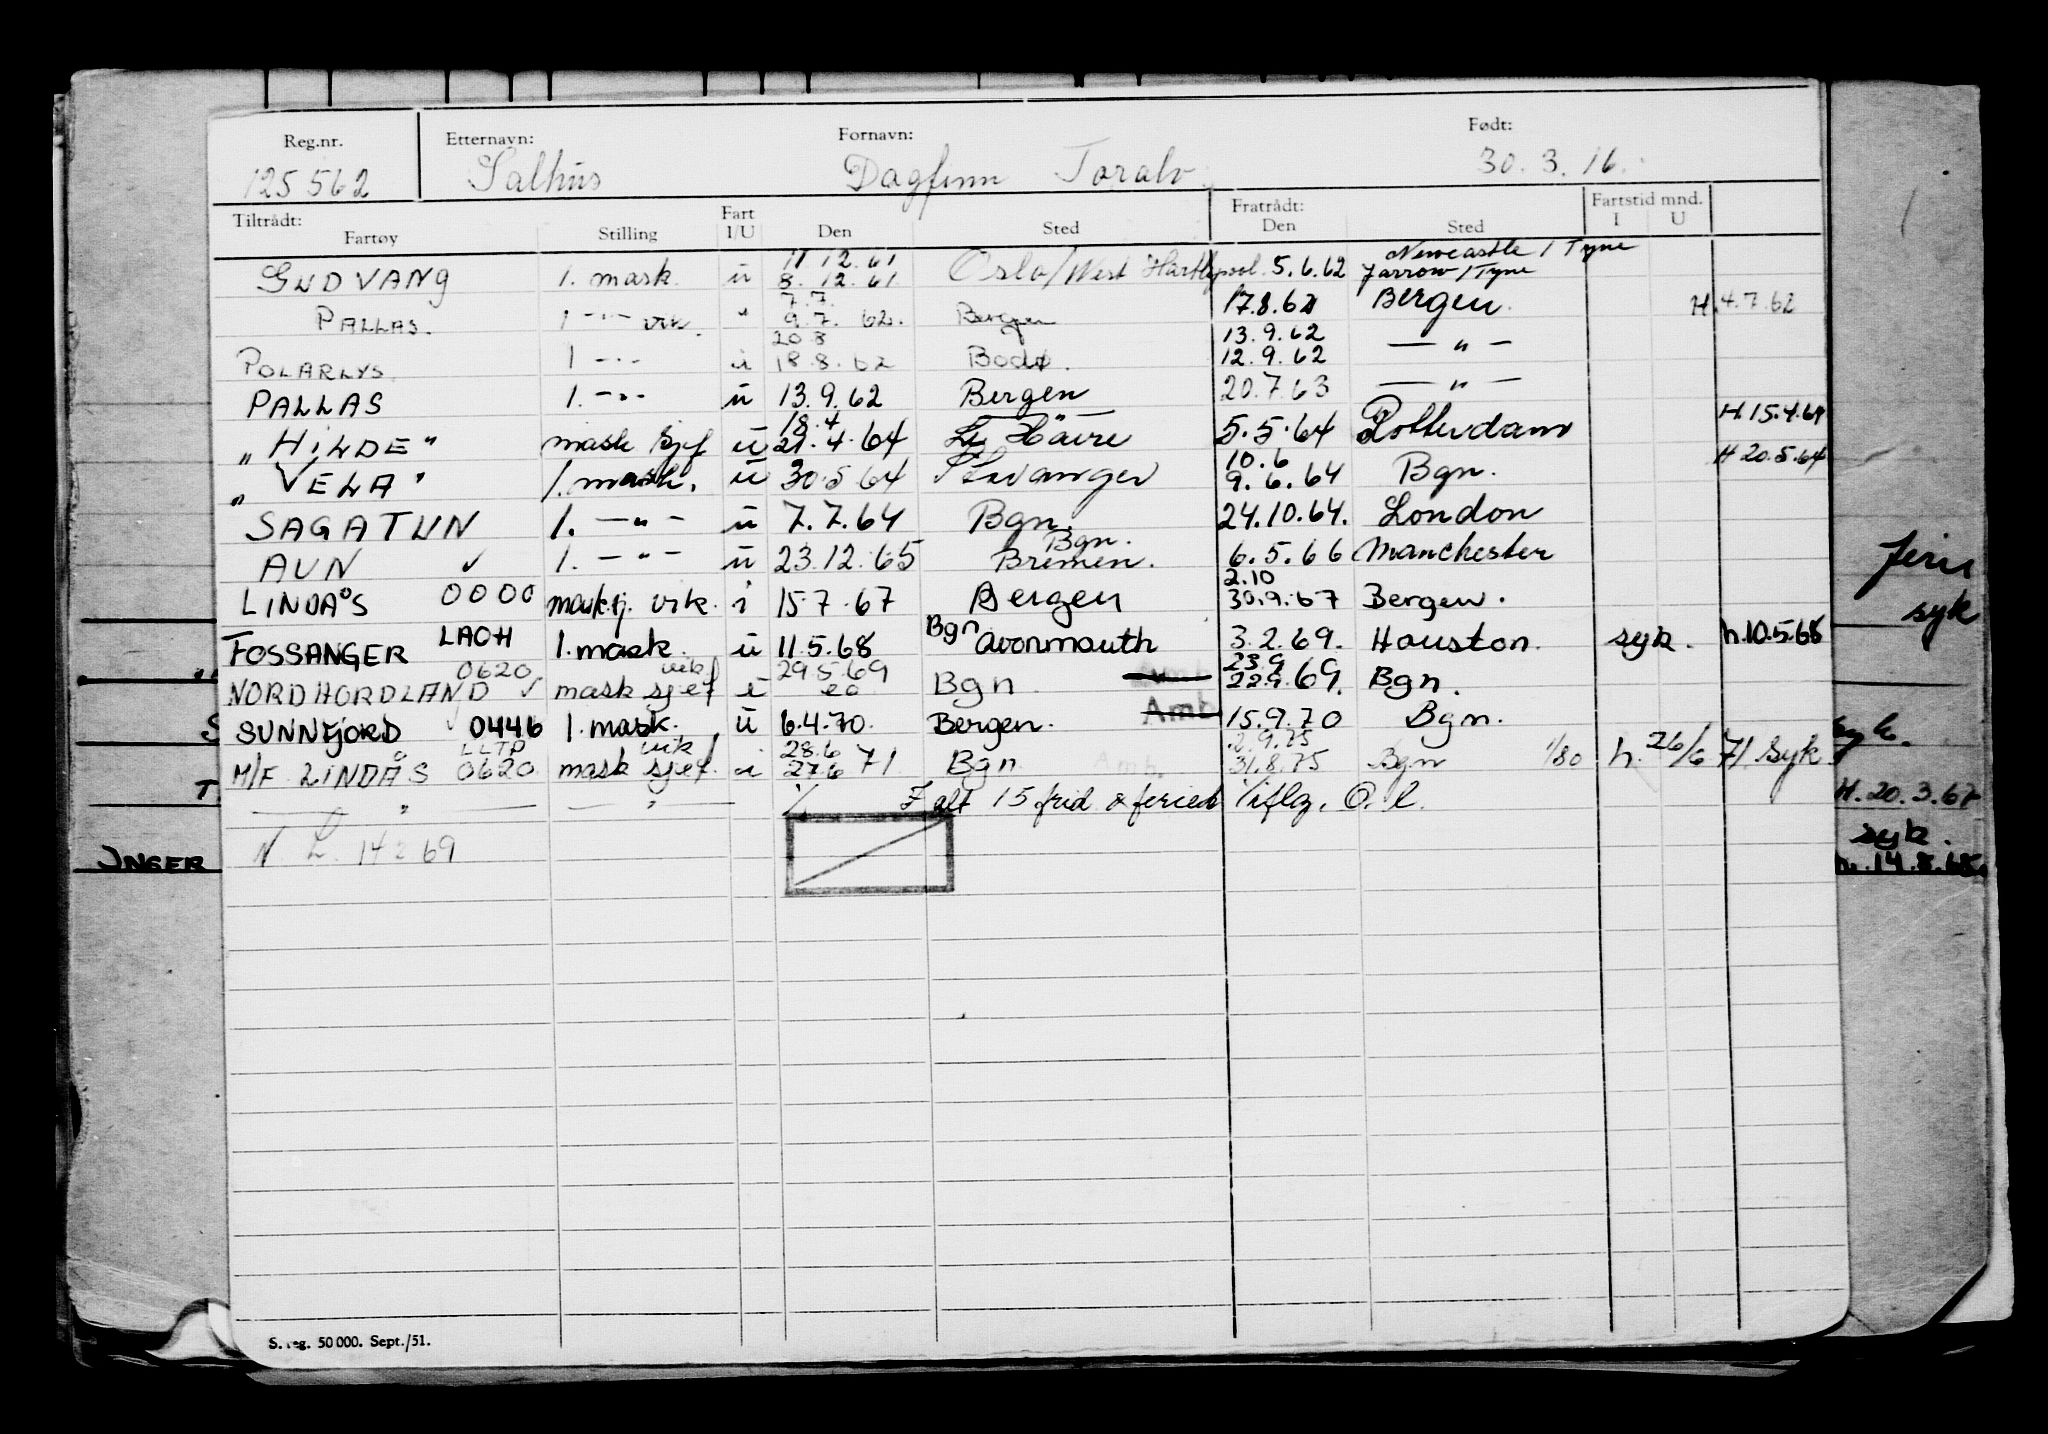 Reg.nr. Etternavn: Fornavn: Født:
125562 Salhus Dagfinn Toralv. 30.3.16.
Tiltrådt: Fart Fratrådt: Fartstid mnd.
Fartøy Stilling I/U Den Sted Den Sted I U
11 12.61 Newcastle / Tyne
GUDVANG 1. mask. u 8.12.61 Oslo/West Hartlepool. 5.6.62 Jarrow/Tyne
7.7. 17.8.62 Bergen. H.4.7.62
PALLAS. 1 -"- vik. " 9.7. 62. Bergen
20 8 13.9.62
POLARLYS 1 -"- u 18.8.62 Bodø. 12.9.62 — " —
PALLAS 1. -"- u 13.9.62 Bergen 20.7.63 — " —
18.4 H.15.4.64
"HILDE" mask sjef u 21.4.64 Le Havre 5.5.64 Rotterdam
10.6 H 20.5.64
"VELA" 1. mask. u 30.5 64 Stavanger 9.6.64 Bgn.
SAGATUN 1. — " — u 7.7.64 Bgn. 24.10.64. London
Bgn.
AUN ✓ 1. — " — u 23.12.65 Bremen. 6.5.66 Manchester
2.10
LINDÅS 0000 mask.sj. vik. i 15.7.67 Bergen 30.9.67 Bergen.
FOSSANGER LAOH 1. mask. u 11.5.68 Bgn Avonmouth 3.2.69. Houston. syk. h.10.5.68
0620 vik 29.5.69 23.9
NORDHORDLAND ✓ mask sjef i Bgn 22.9.69. Bgn.
SUNNFJORD 0446 1. mask. u 6.4.70. Bergen. Amb 15.9.70 Bgn.
LLTP vik 28.6 2.9.75
M/F LINDÅS 0620 mask sjef. i 27.6 71 Bgn Amb. 31.8.75 Bgn 1/80 h. 26/6 71 syk
— " — — " — I alt 15 frid. & feried. O. l.
N. L. 14 2 69
S. reg. 50 000. Sept./51.
syk
syk.
H. 20.3.67
syk.
h. 14.8.68.
INGER